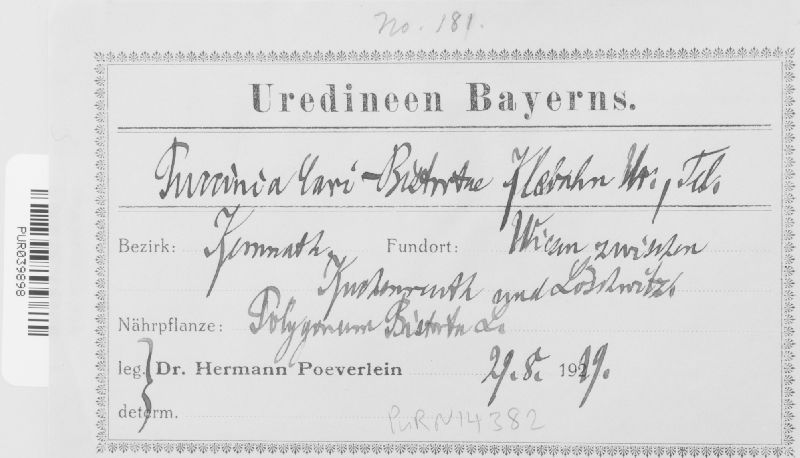 No. 181.
Uredineen Bayerns.
Puccinia Cari-Bistortae Klebahn Ur., Tel.
Bezirk: Kemnath. Fundort: Wiesen zwischen
und Löschwitz.
Nährpflanze: Polygonum Bistorta L.
leg. Dr. Hermann Poeverlein 29.8. 1929.
determ.
PUR N14382
PUR039898